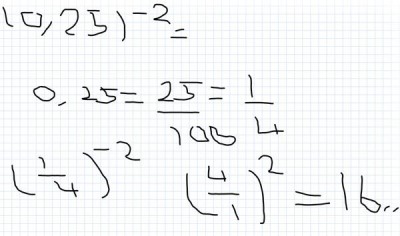 (0,25)^-2 =
0,25 = 25/100 = 1/4
(1/4)^-2 (4/1)^2 = 16..